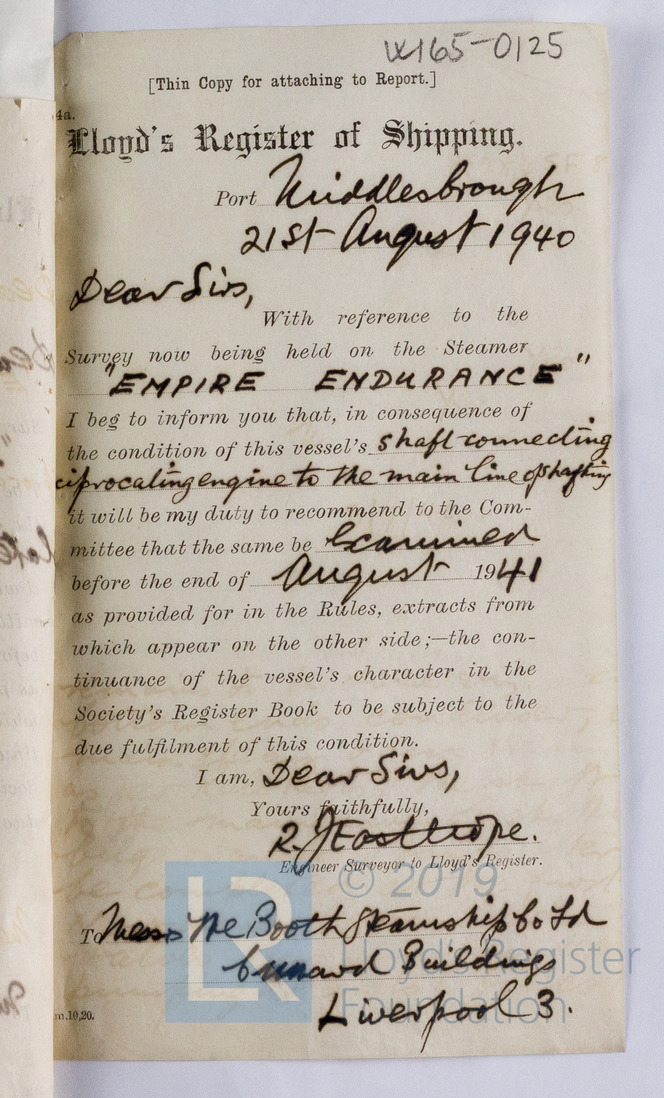 W165-0125
[Thin Copy for attaching to Report.]
4a.
Lloyd's Register of Shipping.
Port Middlesbrough
21st August 1940
Dear Sirs,
With reference to the
Survey now being held on the Steamer
"EMPIRE ENDURANCE"
I beg to inform you that, in consequence of
the condition of this vessel's shaft connecting
ciprocating engine to the main line of shafting
it will be my duty to recommend to the Com-
mittee that the same be Examined
before the end of August 1941
as provided for in the Rules, extracts from
which appear on the other side;—the con-
tinuance of the vessel's character in the
Society's Register Book to be subject to the
due fulfilment of this condition.
I am, Dear Sirs,
Yours faithfully,
R. J. Easthope.
Engineer Surveyor to Lloyd's Register.
© 2019
To Messrs The Booth Steamship Co Ld
Cunard Buildings
Lloyd's Register
Foundation
Liverpool 3.
m.10,20.